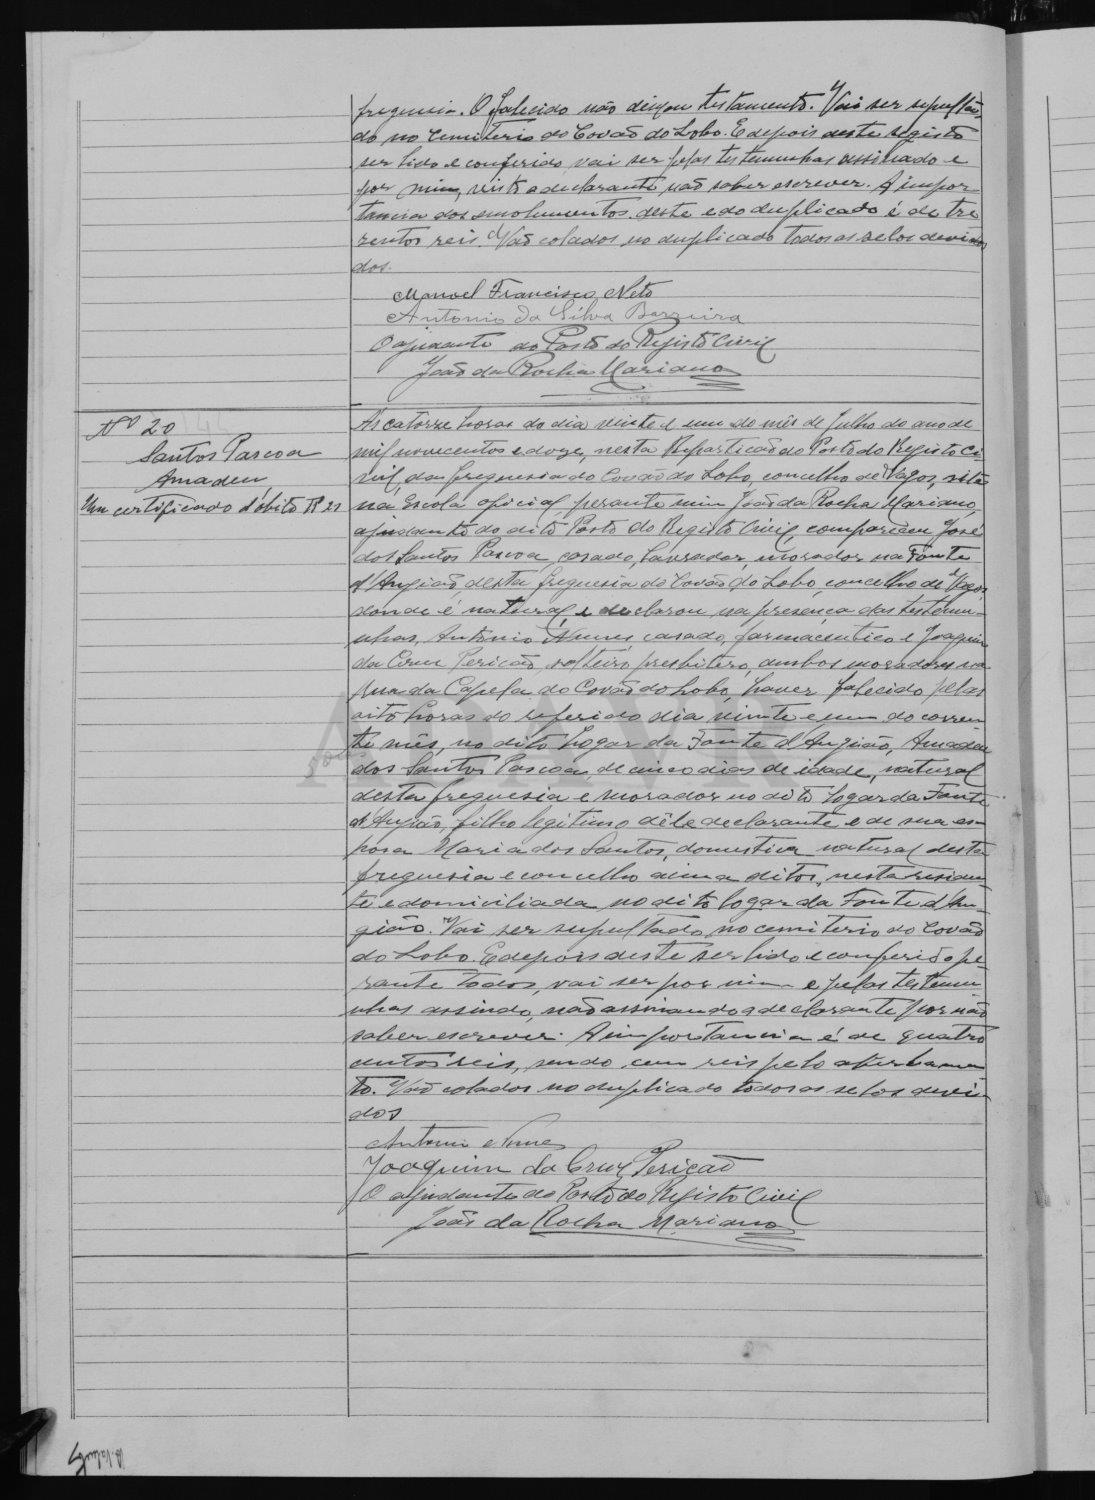 freguesia. O falecido não deixou testamento. Vai ser sepulta-
do no cemiterio do Covão do Lobo. E depois deste registo
ser lido e conferido vai ser pelas testemunhas assinado e
por mim, visto a declarante não saber escrever. A impor-
tancia dos emolumentos deste e do duplicado é de tre
zentos reis. Vão colados no duplicado todos os selos devi
dos.
Manoel Francisco Neto
Antonio da Silva Barreira
O ajudante do Posto do Registo Civil
João da Rocha Mariano
Nº 20
Santos Pascoa
Amadeu
Um certificado d'obito Nº 21
Ás catorze horas do dia vinte e um do mês de Julho do ano de
mil novecentos e doze, nesta Repartição do Posto do Registo Ci
vil, da freguesia do Covão do Lobo, concelho de Vagos, sita
na Escola oficial perante mim João da Rocha Mariano,
ajudante do dito Posto do Registo Civil, compareceu José
dos Santos Pascoa, casado, lavrador, morador na Fonte
d'Angião, desta freguesia do Covão do Lobo, concelho de Vagos,
donde é natural, e declarou na presença das testemu-
nhas, Antonio Nunes, casado, farmaceutico e Joaquim
da Cruz Pericão, solteiro, presbitero, ambos moradores na
rua da Capela do Covão do Lobo, haver falecido pelas
oito horas do referido dia vinte e um do corren
te mês, no dito logar da Fonte d'Angião, Amadeu
dos Santos Pascoa, de cinco dias de idade, natural
desta freguesia e morador no dito logar da Fonte
d'Angião, filho legitimo dêle declarante e de sua es-
posa Maria dos Santos, domestica natural desta
freguesia e concelho acima ditos, nesta residen-
te e domiciliada no dito logar da Fonte d'An-
gião. Vai ser sepultado no cemiterio do Covão
do Lobo. E depois deste ser lido e conferido pe-
rante todos, vai ser por mim e pelas testemu
nhas assinado, não assinando o declarante por não
saber escrever. A importancia é de quatro
centos reis, sendo cem reis pelo averbamen
to. Vão colados no duplicado todos os selos devi-
dos
Antonio Nunes
Joaquim da Cruz Pericão
O ajudante do Posto do Registo Civil
João da Rocha Mariano
ADAVR